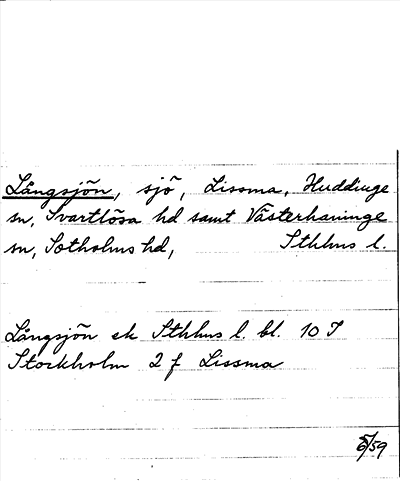 Långsjön, sjö, Lissma, Huddinge
sn, Svartlösa hd samt Västerhaninge
sn, Sotholms hd, Sthlms l.
Långsjön ek Sthlms l. bl. 10 I
Stockholm 2 f Lissma
5/59